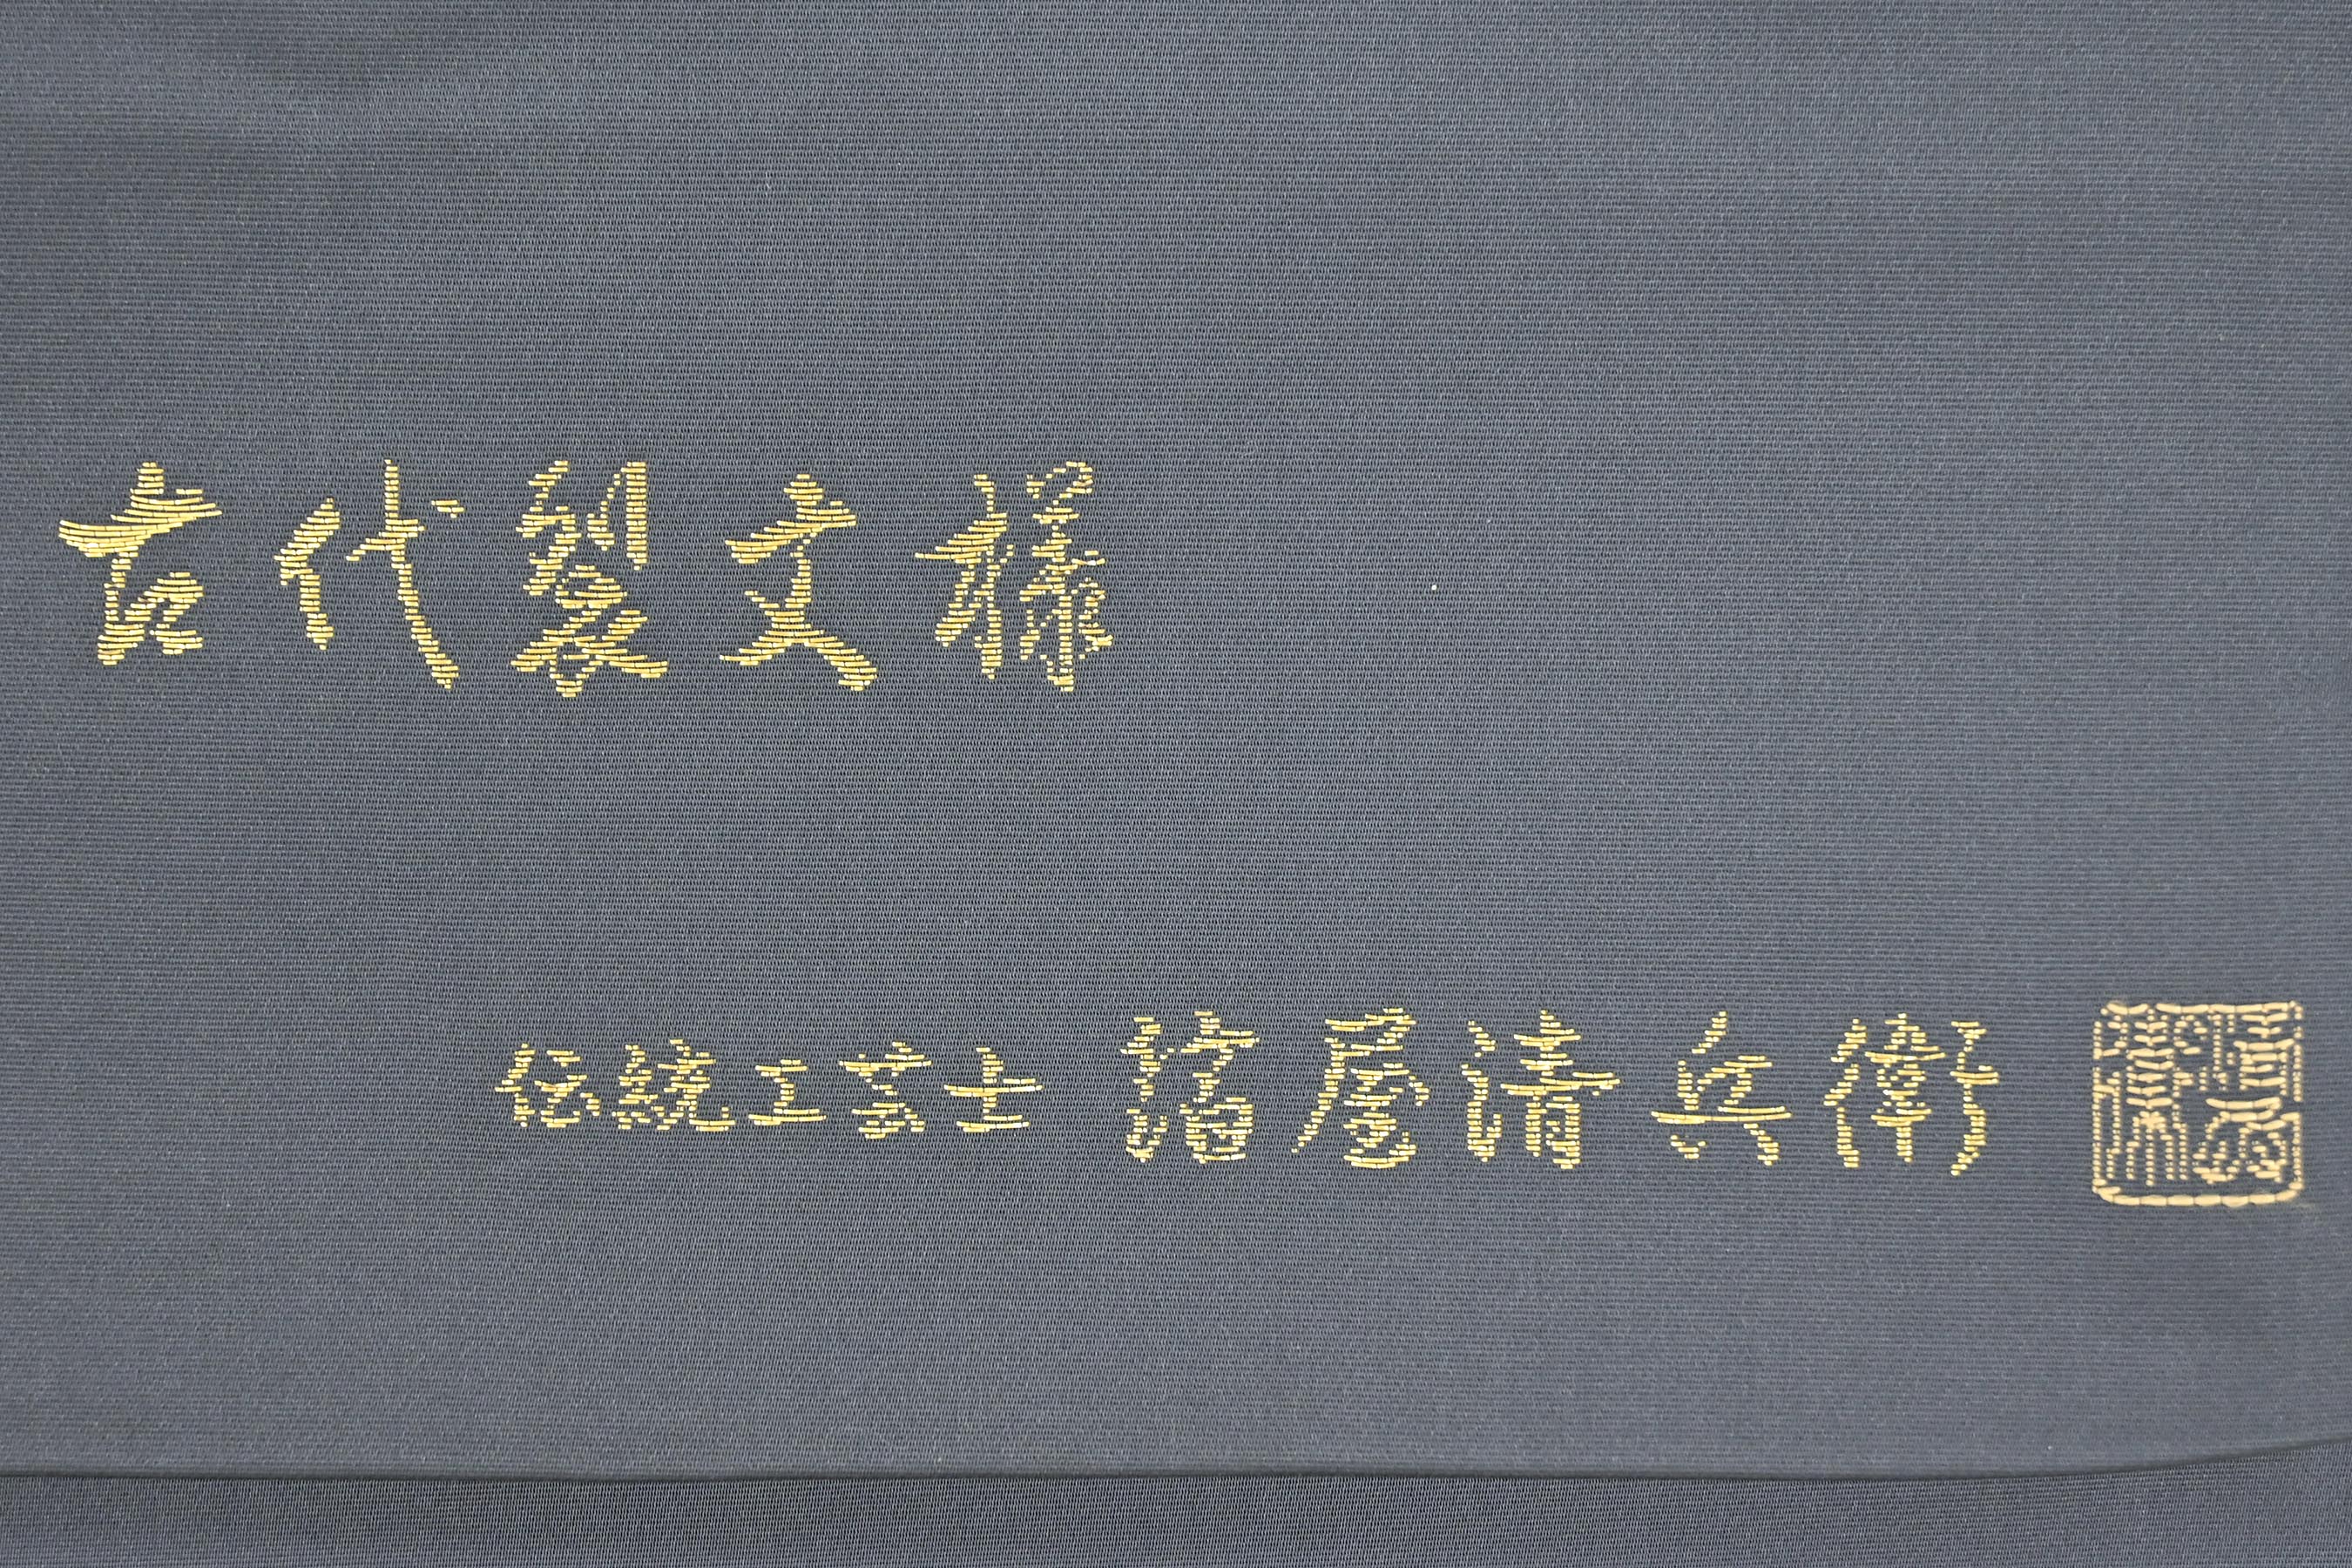 古代裂文様
伝統工芸士 箔屋清兵衛